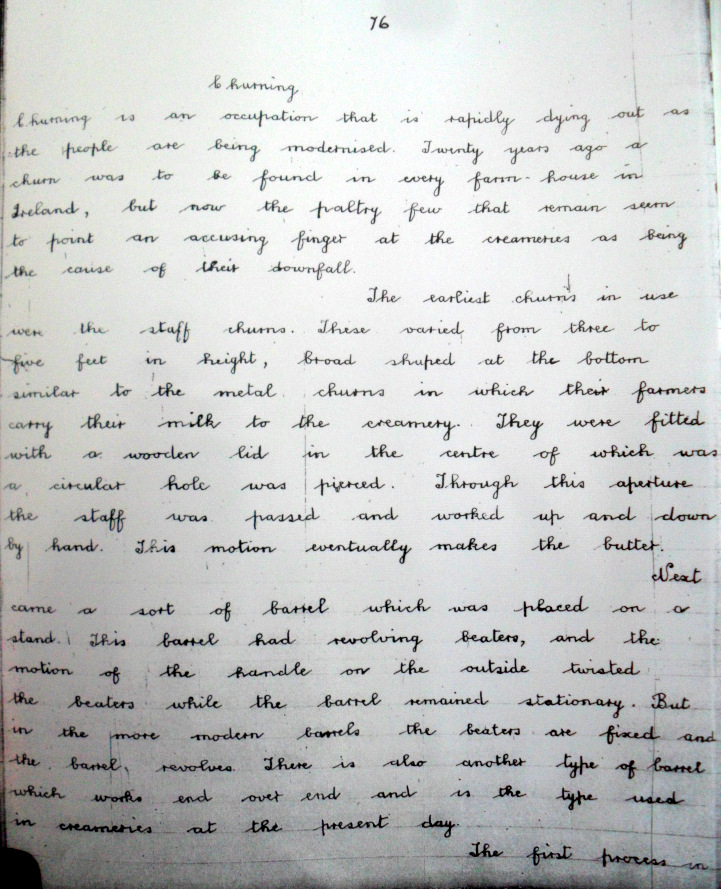 76
Churning
Churning is an occupation that is rapidly dying out as
the people are being modernised. Twenty years ago a
churn was to be found in every farm-house in
Ireland, but now the paltry few that remain seem
to point an accusing finger at the creameries as being
the cause of their downfall.
The earliest churns in use
were the staff churns. These varied from three to
five feet in height, broad shaped at the bottom
similar to the metal churns in which their farmers
carry their milk to the creamery. They were fitted
with a wooden lid in the centre of which was
a circular hole was pierced. Through this aperture
the staff was passed and worked up and down
by hand. This motion eventually makes the butter.
Next
came a sort of barrel which was placed on a
stand. This barrel had revolving beaters, and the
motion of the handle on the outside twisted
the beaters while the barrel remained stationary. But
in the more modern barrels the beaters are fixed and
the barrel, revolves. There is also another type of barrel
which works end over end and is the type used
in creameries at the present day.
The first process in